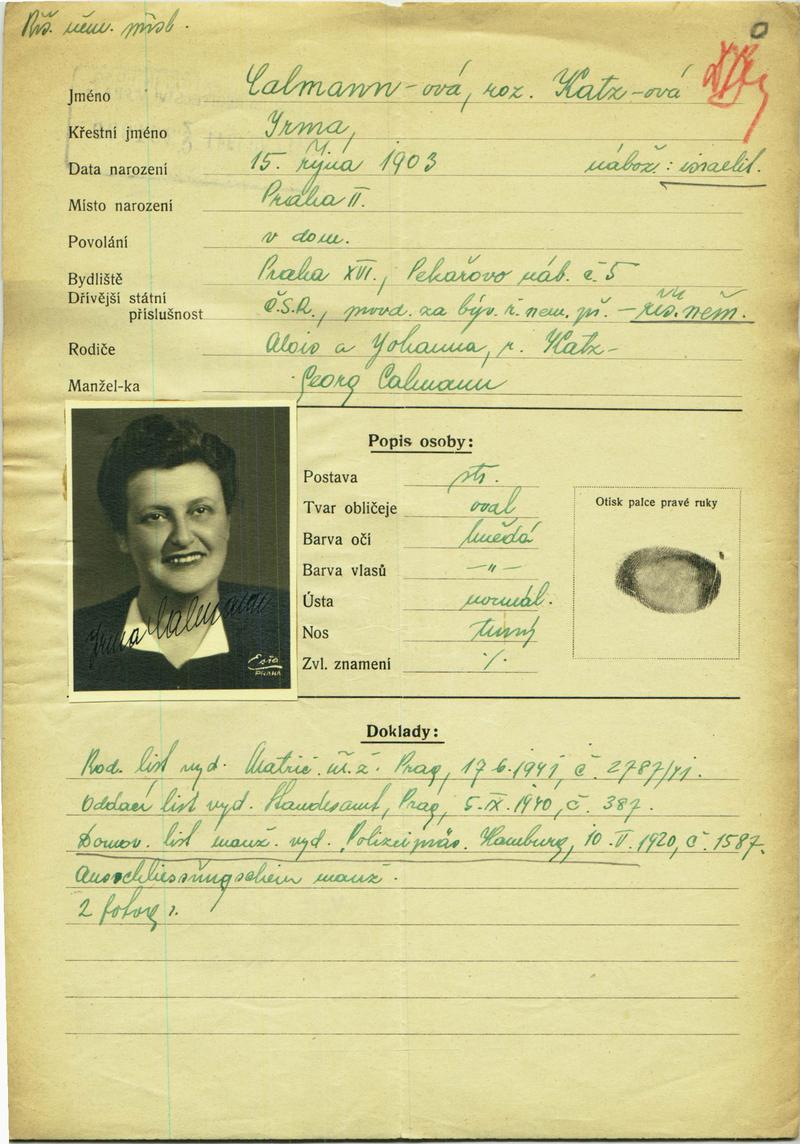 Říš. něm. přísl.
Jméno Calmann-ová, roz. Katz-ová
Křestní jméno Yrma,
Data narození 15. října 1903 nábož.: israelit.
Místo narození Praha II.
Povolání v dom.
Bydliště Praha XVI., Pekařovo náb. č. 5
Dřívější státní
příslušnost Č.S.R., provd. za býv. ř. nem. př. – říš. něm.
Rodiče Alois a Yohanna, r. Katz-
Manžel-ka Georg Calmann
Popis osoby:
Postava stř.
Tvar obličeje oval
Barva očí hnědá
Barva vlasů –"–
Ústa normál.
Nos
Zvl. znamení ./.
Otisk palce pravé ruky
Yrma Calmann
PRAHA
Doklady:
Rod. list vyd. Matrič. úř. ž. Prag, 17.6.1941, č. 2787/41.
Oddací list vyd. Standesamt, Prag, 5.IX.1940, č. 387.
Domov. list manž. vyd. Polizeipräs. Hamburg, 10.V.1920, č. 1587.
Ausschliessungschein manž.
2 fotogr.